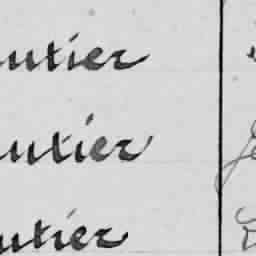 utier
utier
utier